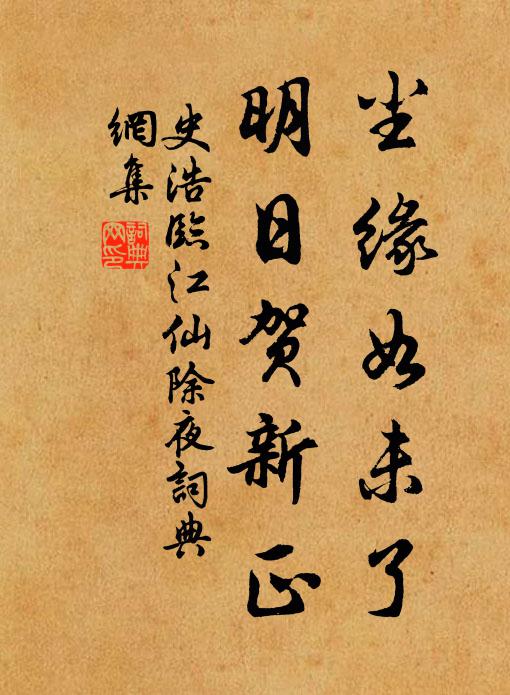 尘缘如未了
明日贺新正
史浩臨江仙除夜詞典
網集
詞典
网印